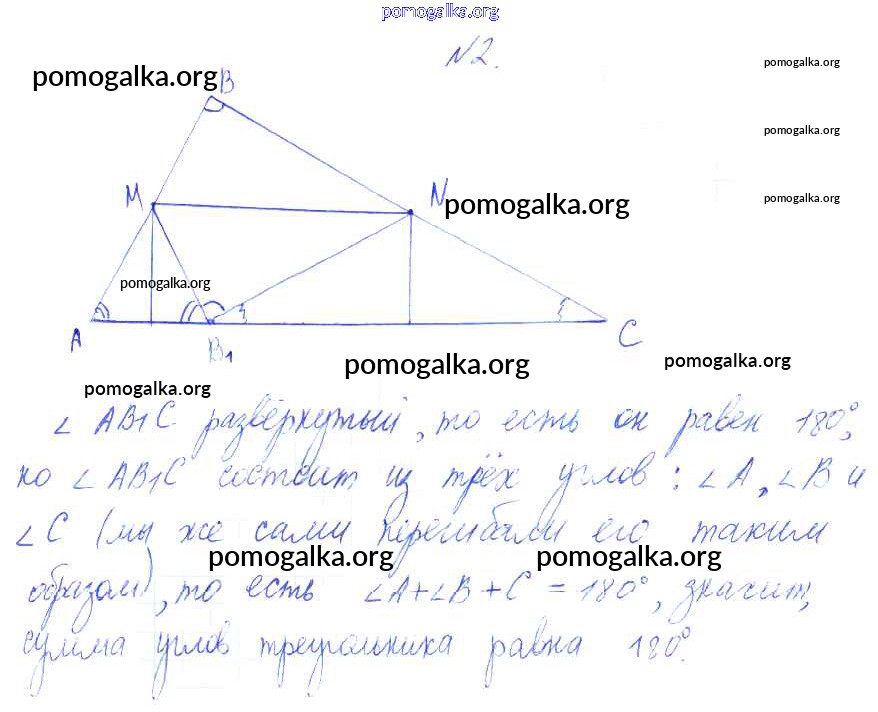 pomogalka.org
N2.
pomogalka.org
pomogalka.org
B
pomogalka.org
M
N
pomogalka.org
pomogalka.org
pomogalka.org
A
B1
C
pomogalka.org
pomogalka.org
pomogalka.org
∠ AB1C развёрнутый, то есть он равен 180°,
но ∠ AB1C состоит из трёх углов: ∠A, ∠B и
∠C (мы же сами перегибали его таким
pomogalka.org
pomogalka.org
образом), то есть ∠A+∠B+C = 180°, значит,
сумма углов треугольника равна 180°.